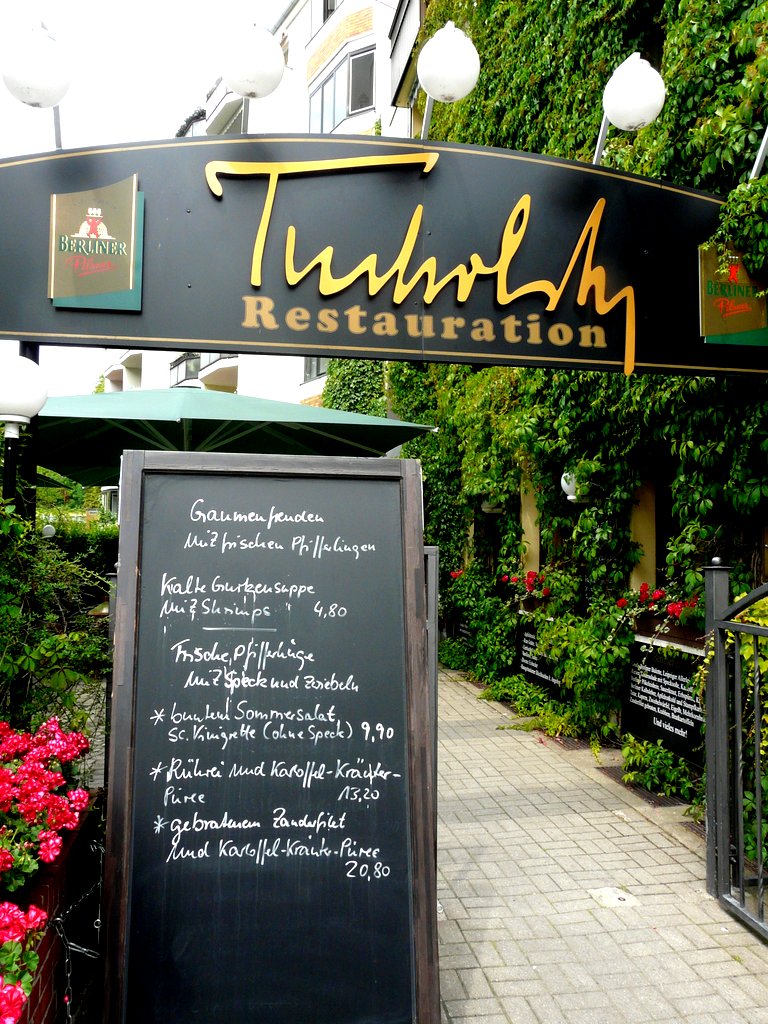 Tucholsky
Restauration
BERLINER
Pilsner
BERLINER
Pilsner
Gaumenfreuden
mit frischen Pfifferlingen
Kalte Gurkensuppe
mit Shrimps 4,80
Frische Pfifferlinge
mit Speck und Zwiebeln
* buntem Sommersalat,
sc. Vinigrette (ohne Speck) 9,90
* Rührei und Kartoffel-Kräuter-
Püree 13,20
* gebratenem Zanderfilet
und Kartoffel-Kräuter-Püree
20,80
Und vieles mehr!